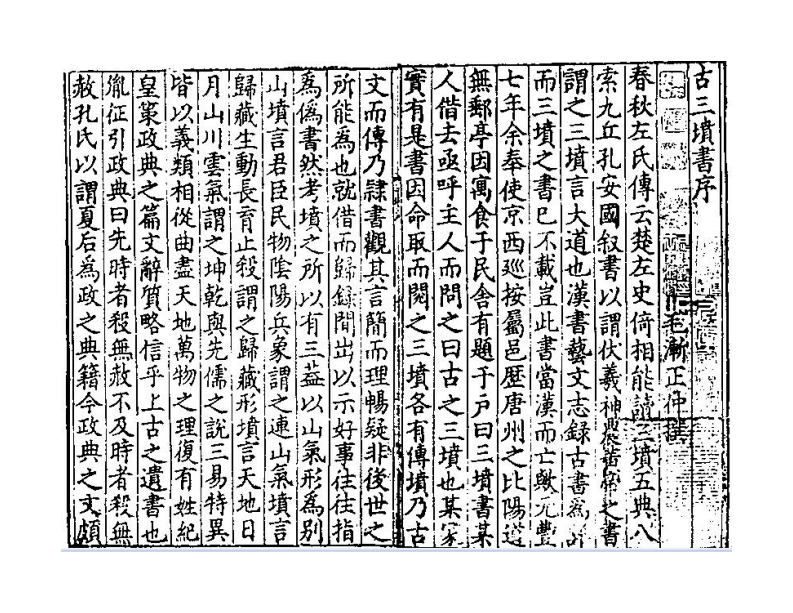 古三墳書序
毛漸正仲撰
春秋左氏傳云楚左史倚相能讀三墳五典八
索九丘孔安國叙書以謂伏羲神農黃帝之書
謂之三墳言大道也漢書藝文志錄古書為詳
而三墳之書已不載豈此書當漢而亡歟元豐
七年余奉使京西廵按屬邑歷唐州之比陽道
無郵亭因寓食于民舍有題于户曰三墳書某
人借去亟呼主人而問之曰古之三墳也某家
實有是書因命取而閱之三墳各有傳墳乃古
文而傳乃隷書觀其言簡而理暢疑非後世之
所能為也就借而歸錄間出以示好事往往指
為偽書然考墳之所以有三葢以山氣形為別
山墳言君臣民物陰陽兵象謂之連山氣墳言
歸藏生動長育止殺謂之歸藏形墳言天地日
月山川雲氣謂之坤乾與先儒之說三易特異
皆以義類相從曲盡天地萬物之理復有姓紀
皇策政典之篇文辭質略信乎上古之遺書也
胤征引政典曰先時者殺無赦不及時者殺無
赦孔氏以謂夏后為政之典籍今政典之文頗